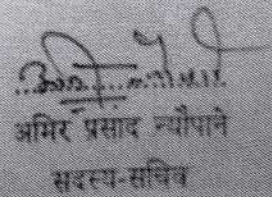 अमिर प्रसाद न्यौपाने
सदस्य-सचिव